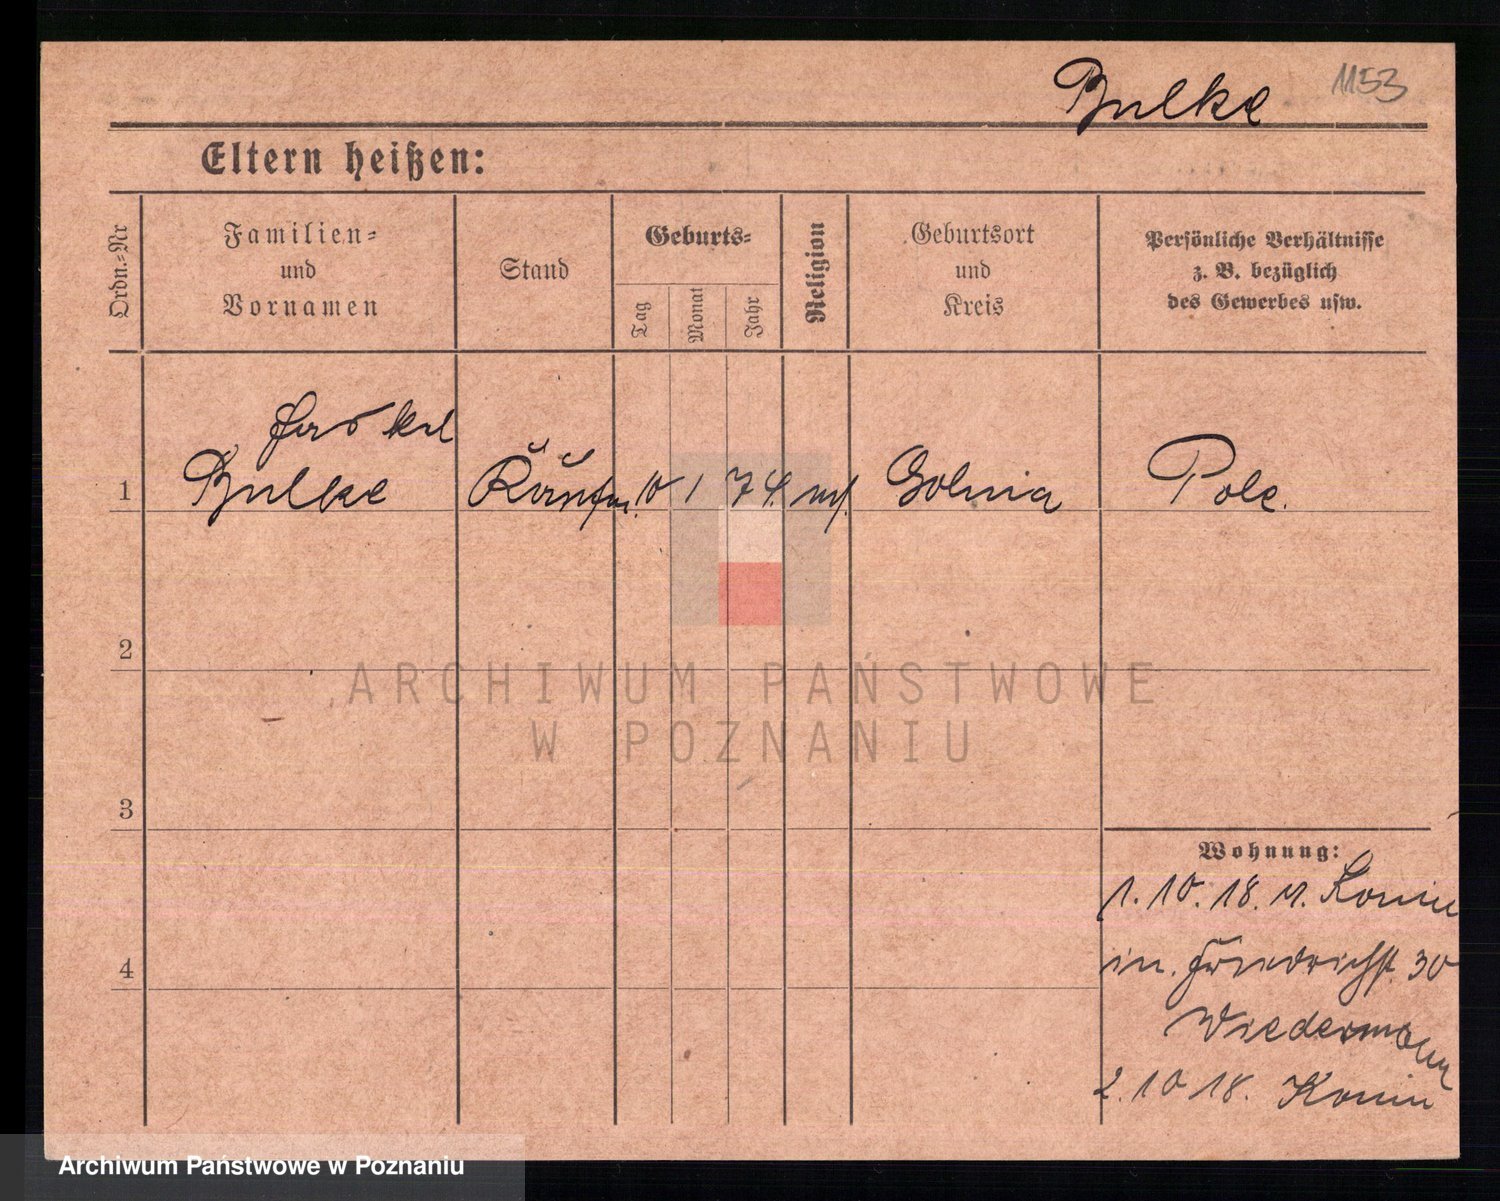 Bulke 1153
Eltern heißen:
Ordn.-Nr
Familien-
und
Vornamen
Stand
Geburts-
Tag
Monat
Jahr
Religion
Geburtsort
und
Kreis
Persönliche Verhältnisse
z. B. bezüglich
des Gewerbes usw.
1
Bulke
Kaufm. 10 1 74.
Golnia
Pole.
2
ARCHIWUM PAŃSTWOWE
W POZNANIU
3
Wohnung:
1. 10. 18. v. Konin
in. Friedrichst. 30
4
Wiedermann
2. 10 18. Konin
Archiwum Państwowe w Poznaniu